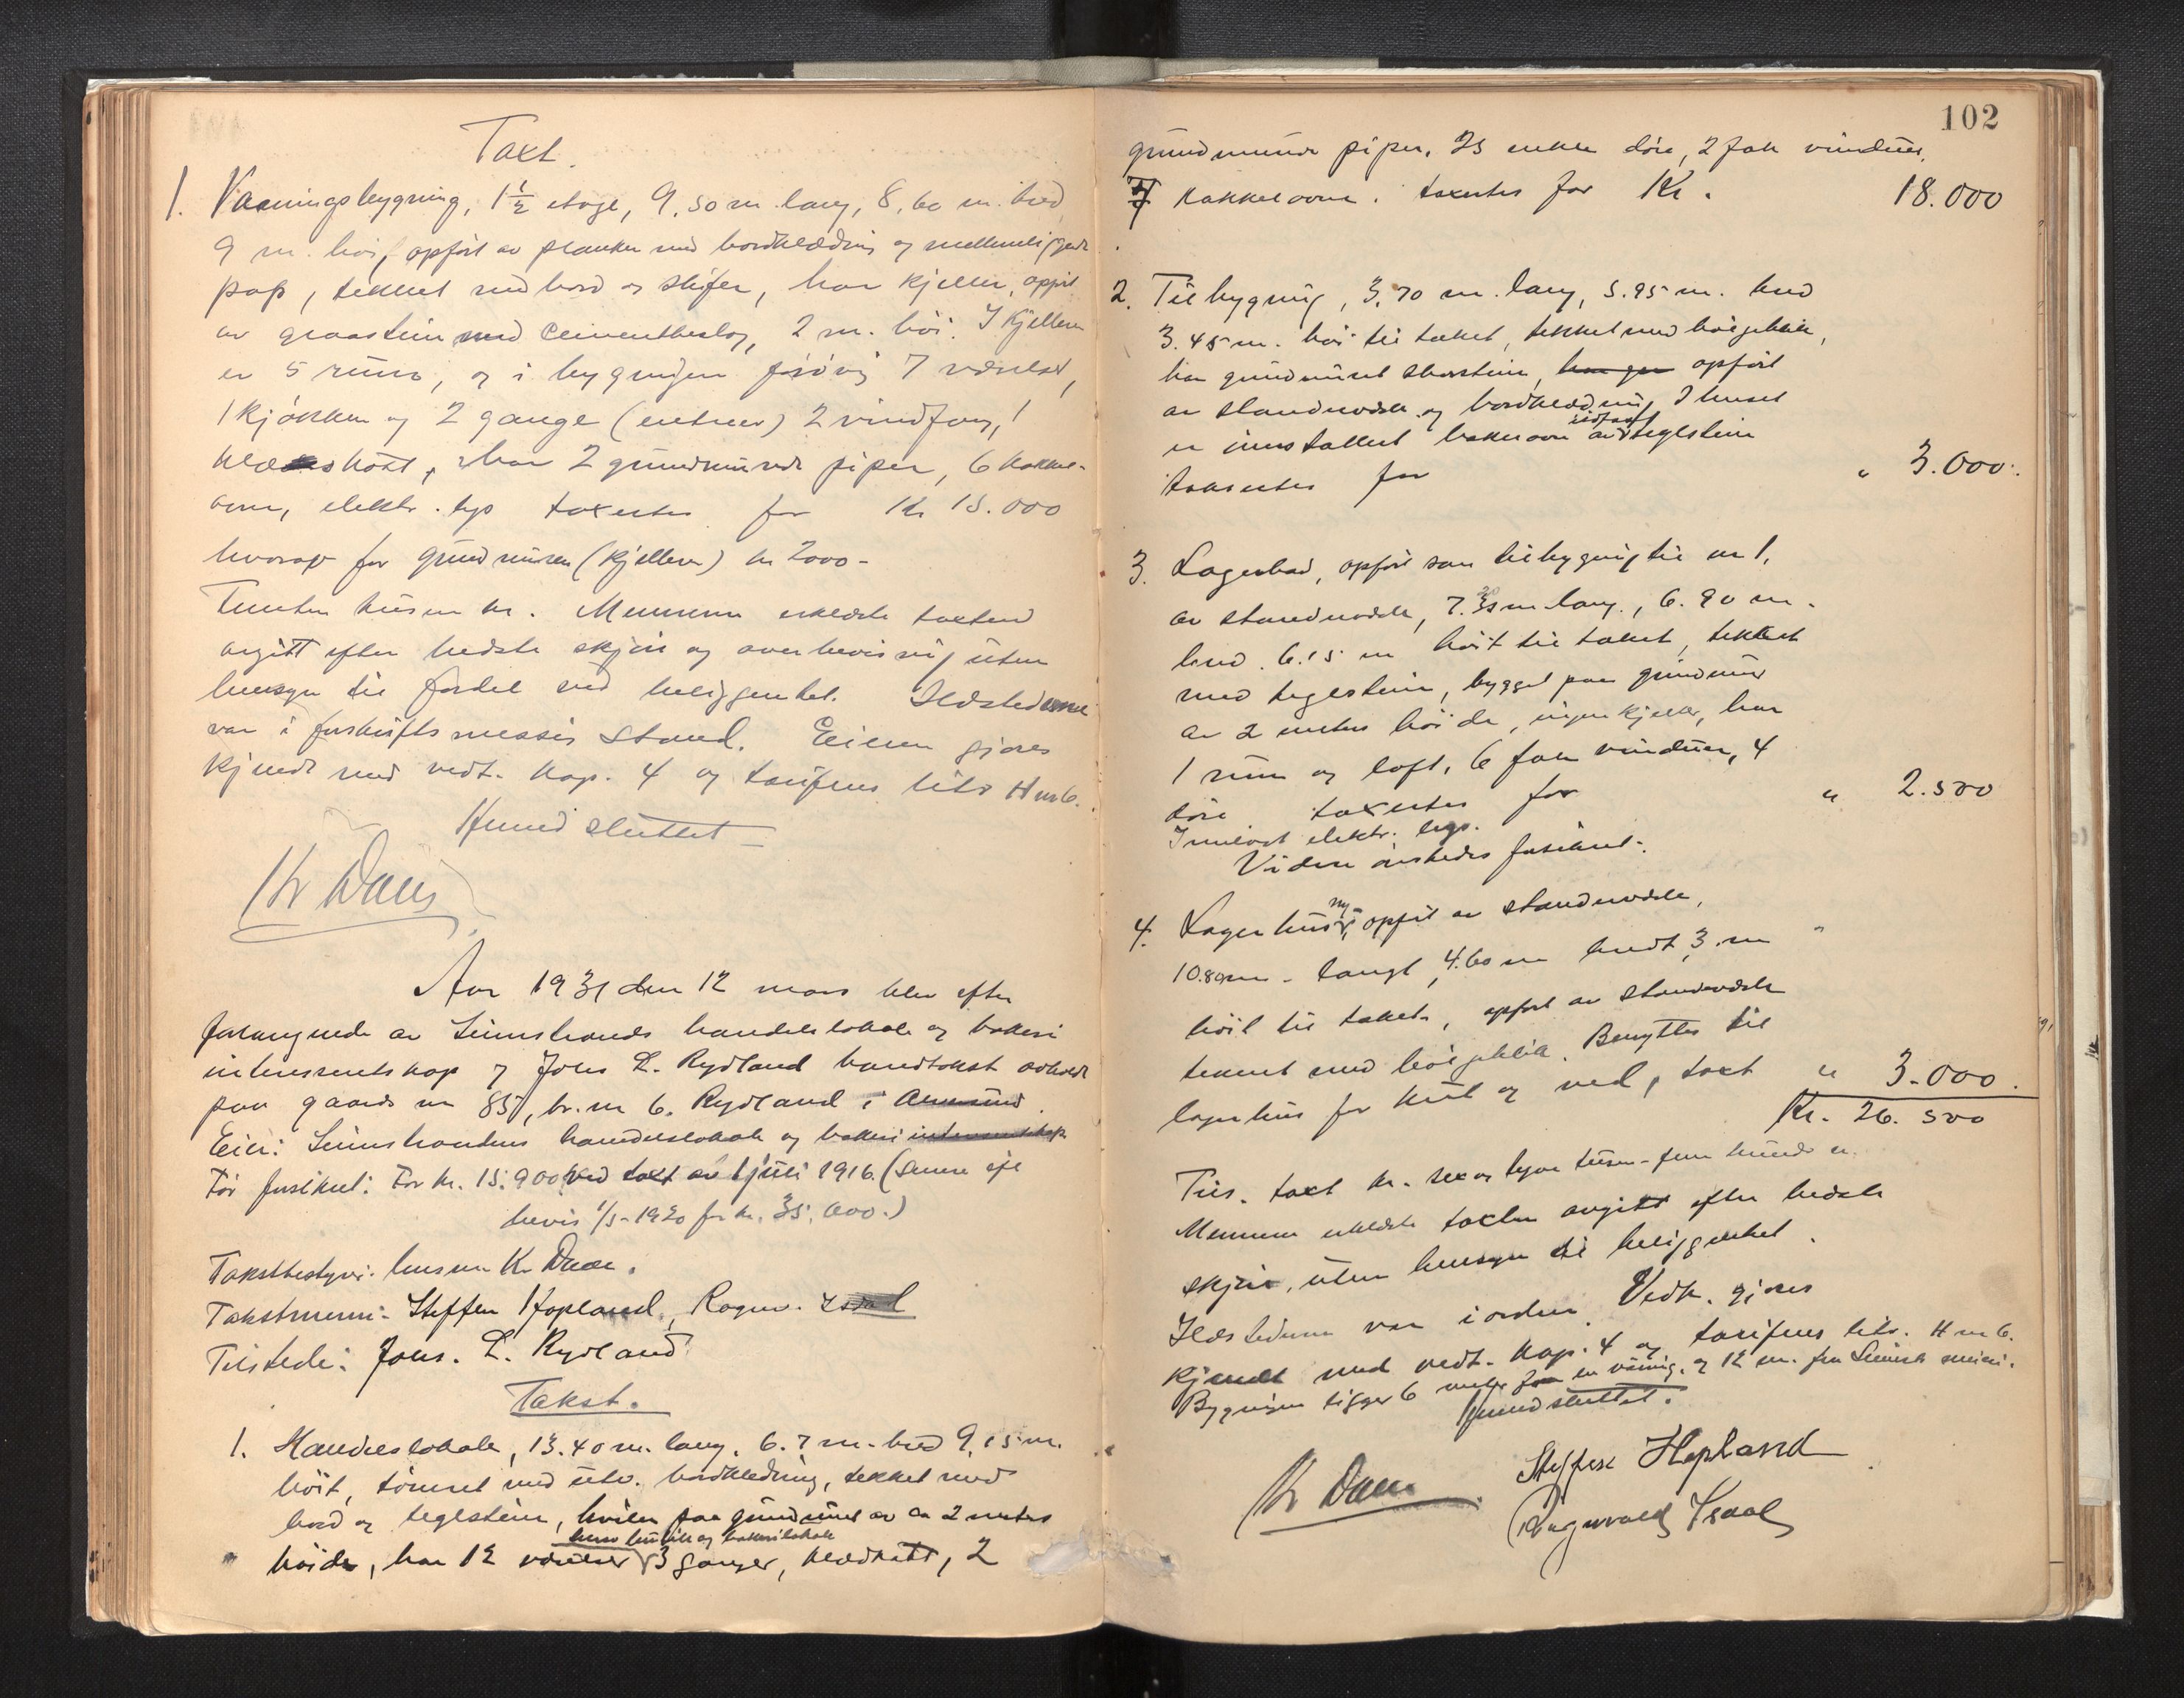 Taxt.
1. Vaaningsbygning, 1½ etage, 9,50 m. lang, 8,60 m. bred
9 m. høi, opført av planker med bordklædning og mellemliggende
pap, tekket med bord og skifer, har kjeller, opført
av graastein med cementbeslag, 2 m. høi. I kjelleren
er 5 rum, og i bygningen forøvrig 7 værelser,
1 kjøkken og 2 gange (entreer) 2 vindfang, 1
klæskott, har 2 grundmurede piper, 6 kakkel-
ovne, elektr. lys taxertes for Kr 15.000
hvorav for grundmuren (kjelleren) kr 2000-
Femten tusen kr. Mennene erklærte taxten
avgitt efter bedste skjøn og overbevisning uten
hensyn til fordel ved beliggenhet. Ildstederne
var i forskriftsmessig stand. Eieren gjøres
kjendt med vedt. kap. 4 og tarifens litr H nr 6.
Hermed sluttet
Kr Daae
Aar 1931 den 12 mars blev efter
forlangende av Seimstrands handelslokale og bakeri
interessentskap v/ Johs L. Rydland brandtakst avholdt
paa gaards nr 85, br. nr 6. Rydland i
Eier: Seimstrandens handelslokale og bakeri interessentskap
Før forsikret: For kr. 15.900 ved taxt av 1 juli 1916. (Senere eje
bevis 1/5-1920 for kr. 35.000.)
Takstbestyrer: lensm Kr Daae.
Takstmenn: Steffen Hopland, Ragnv.
Tilstede: Johs. L. Rydland
Takst.
1. Handelslokale, 13.40 m. lang, 6.7 m. bred 9,15 m.
høit, tømret med utv. bordkledning, tekket med
bord og teglstein, hviler paa grundmur av ca 2 meters
butik og bakerilokale
høide, har 12 værelser 3 ganger, klædskott, 2
102
grundmurede piper, 25 enkle døre, 2 fak vinduer,
7 kakkelovne. taxertes for Kr. 18.000
2. Tilbygning, 3,70 m. lang, 5.95 m. bred
3.45 m. høi til taket, tekket med bølgeblik,
har grundmuret skorstein, opført
av standverk og bordklædning I huset
er installert bakerovn ildfast teglstein
taksertes for " 3.000.
3. Lagerbod, opført som tilbygning til nr 1,
av standverk, 7.35 m lang, 6.90 m.
bred. 6.15 m høit til taket, tekket
med teglstein, bygget paa grundmur
av 2 meters høide, ingen kjeller, har
1 rum og loft, 6 fak vinduer, 4
døre taxertes for " 2.500
Innlagt elektr. lys.
Videre ønskedes forsikret:
ny-
4. Lagerhus, opført av standverk,
10.80 m - langt, 4.60 m bredt, 3 m
høit til taket, opført av standverk
tekket med bølgeblik. Benyttes til
lagerhus for kul og ved, taxt " 3.000.
Kr. 26.500
Tils. taxt kr. sex og tyve tusen - fem hundre kr.
Mennene erklærte taxten avgitt efter bedste
skjøn, uten hensyn til beliggenhet.
Ildstederne var i orden. Vedk. gjøres
kjendt med vedt. kap. 4 og tarifens litr. H nr 6.
Bygningen ligger 6 meter fra en våning, og 12 m. fra Seimsk meieri.
Hermed sluttet.
Kr Daae
Steffen Hopland
Ragnvald Isdal